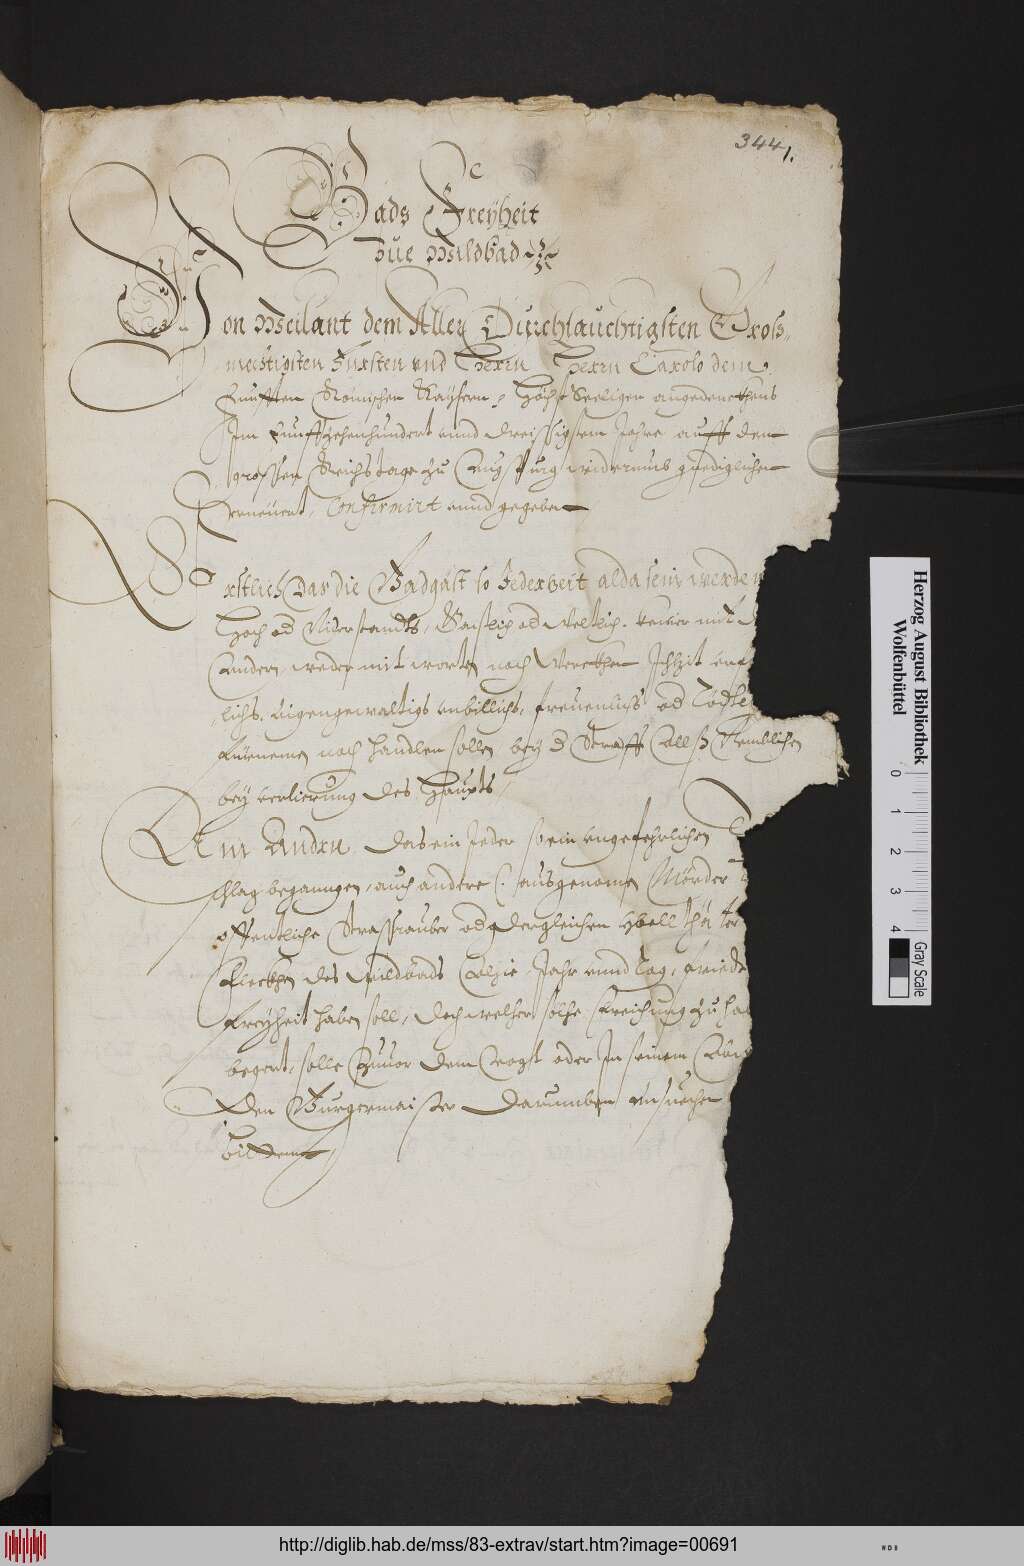 3441.
Bads Freÿheit
Zue Wildbad
Von Weilant dem Aller Durchlauchtigsten Gros=
mechtigsten Fursten vnd Herrn Herrn Carolo dem
Fünfften Römischen Kaÿsern, Höchst Seeligen angedenckhens
Im Funffzehenhundert vnnd dreissigstem Jahre auff dem
grossen Reichstage zu Augspurg widerumb gnediglichen
erneüert, Confirmirt vnnd gegeben
Erstlich Das die Badgäst so Jederzeit alda sein werden
Hoch od Niderstandts, Gaistlich od Weltlich, keiner mit d
Andern, weder mit worten noch Werckhen
lichs, Aigengewaltigs vnbillichs, freuenlichs od Tödtl
fürnemen noch handlen sollen beÿ d Straff Nemblichen
beÿ verlierung des Haupts
Zum Andrn das ein Jeder so ein vngefehrlichen
schlag begangen, auch andere (: ausgenomen Mörder
offentliche Strassrauber od dergleichen Vbell thäter
Fleckhen des Wildbads Jahr vnnd tag, friedt
Freÿheit haben soll, doch welher solche Freihung zu ha
begert, solle Zuuor dem Vogt oder In seinem Ab
den Burgermaister darumben ansuechen
bitten
Herzog August Bibliothek
Wolfenbüttel
0 1 2 3 4
Gray Scale
http://diglib.hab.de/mss/83-extrav/start.htm?image=00691